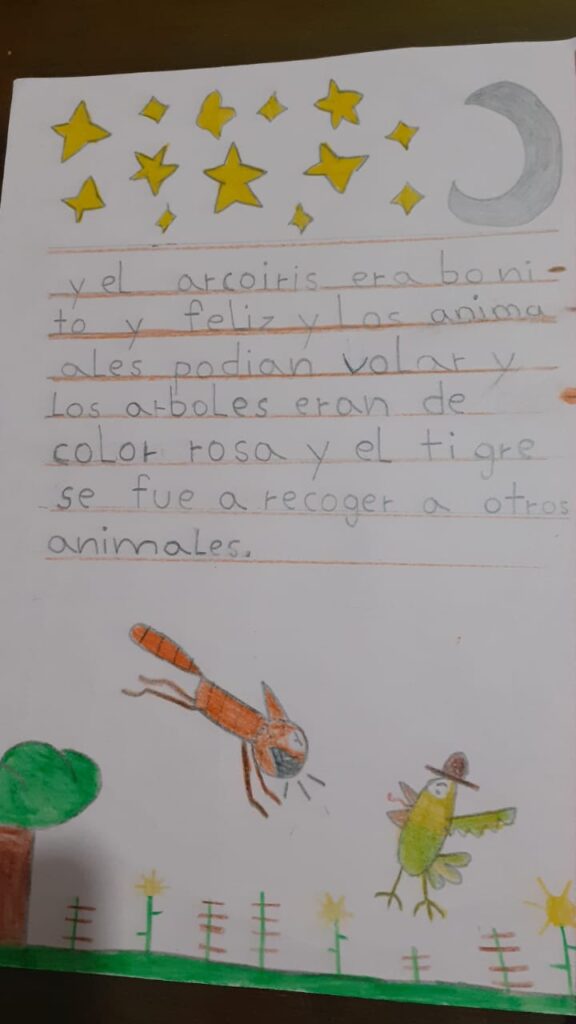 y el arcoiris era boni-
to y feliz y Los anima
ales podian volar y
Los arboles eran de
color rosa y el tigre
se fue a recoger a otros
animales.